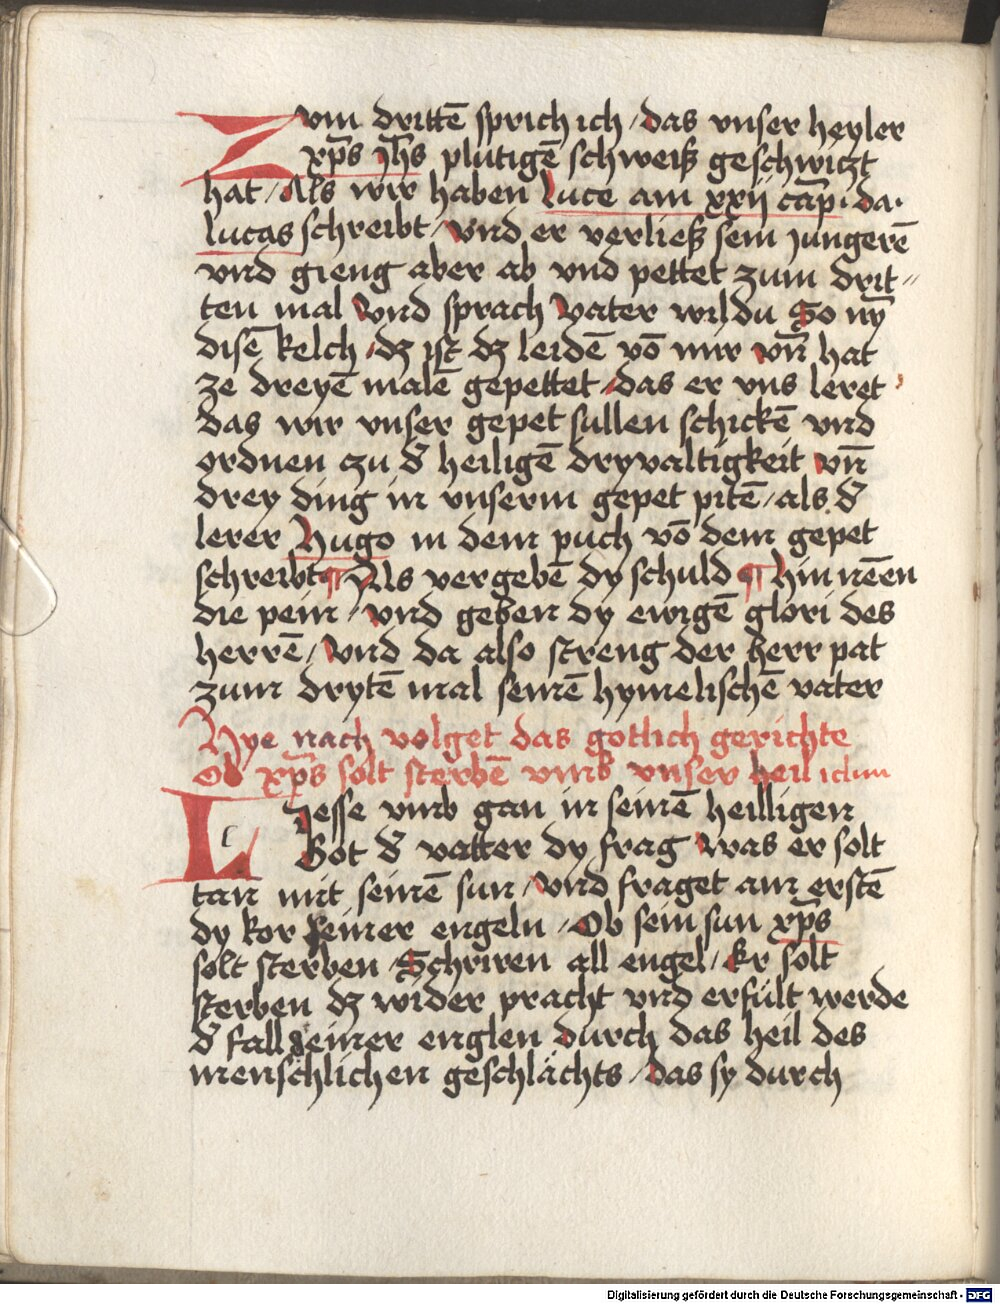 Zum drittē sprich ich / das vnser heyler
xp̄s jh̄s plutigē schweiß geschwiczt
hat / Als wir haben Luce am xxij cāp · da ·
lucas schreibt / Vnd er verließ sein jungerē
vnd gieng aber ab vnd pettet zum drit〃
ten mal Vnd sprach Vater wildu So nȳ
disē kelch / dz ist dz leidē vō mir vn̄ hat
ze dreyē malē gepettet / das er vns leret
das wir vnser gepet sullen schickē vnd
ordnen czu d̄ heiligē dryvaltigkeit vn̄
drey ding in vnserm gepet pitē / als d̄
lerer Hugo in dem puch vō dem gepet
schreibt ¶ Als vergebē dy schuld ¶ hin nēen
die pein / vnd geben dy ewigē glori des
herrē / Vnd da also streng der herr pat
zum drytē mal seinē hymelischē vater
Hye nach volget das gotlich gerichte
Ob xp̄s solt sterbē vmb vnser heil
Liesse vmb gan in seinē heilligen
Got d̄ vatter dy frag was er solt
tan mit seinē sun / Vnd fraget am erstē
dy kor seiner engeln / Ob sein sun xp̄s
solt sterben / Schriren all engel / Er solt
sterben dz wider pracht vnd erfült werde
d̄ fall seiner englen durch das heil des
menschlichen geschlächts / das sy durch
Digitalisierung gefördert durch die Deutsche Forschungsgemeinschaft - DFG